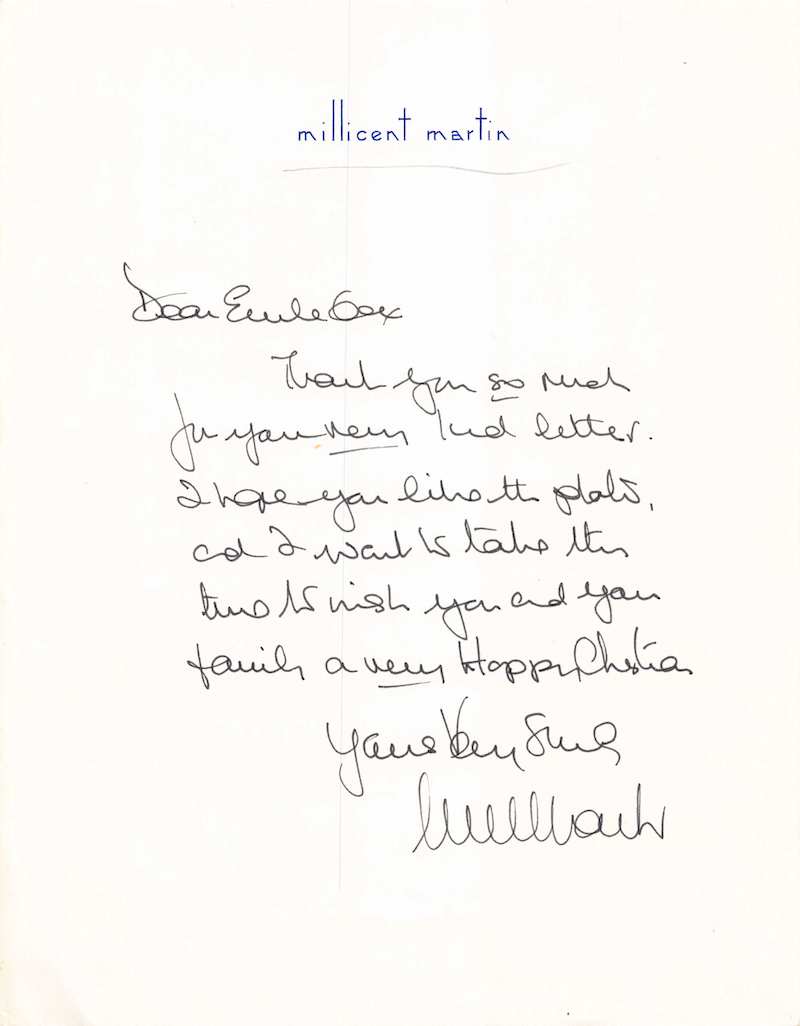 millicent martin
Dear Emile Cox
Thank you so much
for your very kind letter.
I hope you like the photo,
and I want to take this
time to wish you and your
family a very Happy Christmas
Yours Very Sincerely
Millicent Martin